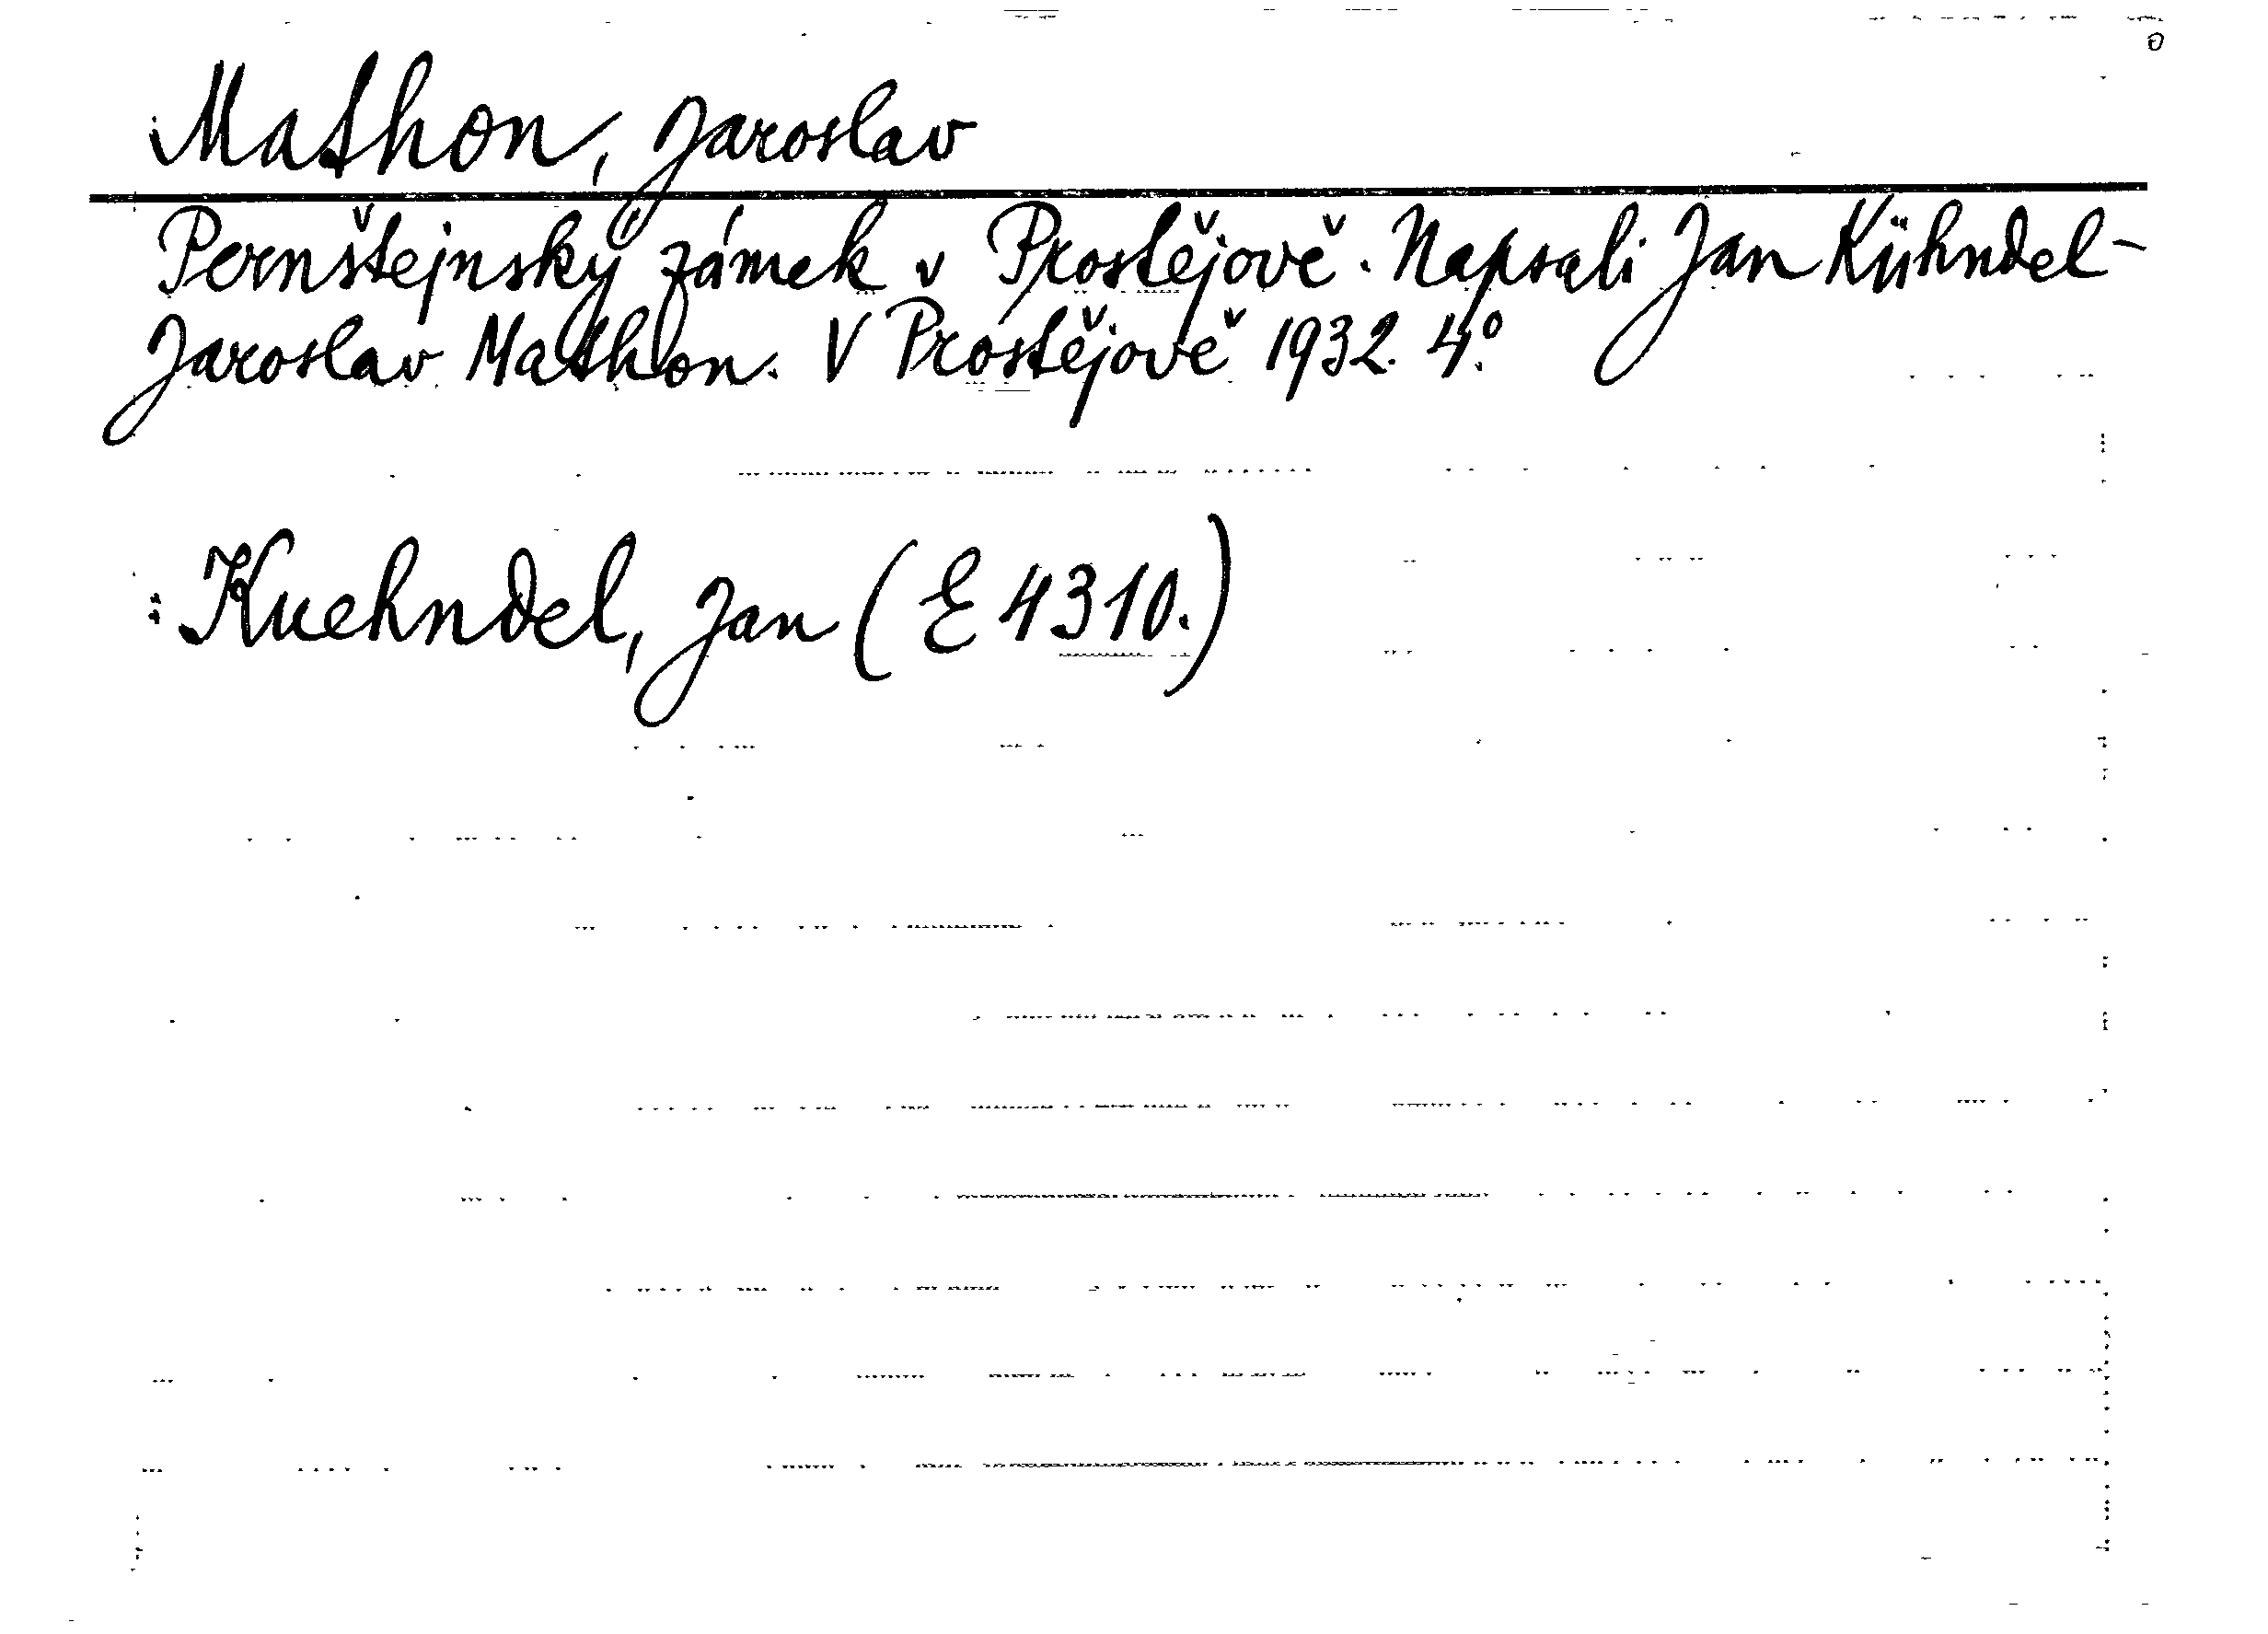 Mathon, Jaroslav
Pernštejnský zámek v Prostějově. Napsali Jan Kühndel-
Jaroslav Mathon. V Prostějově 1932. 4.°
Kuehndel, Jan (E 4310.)